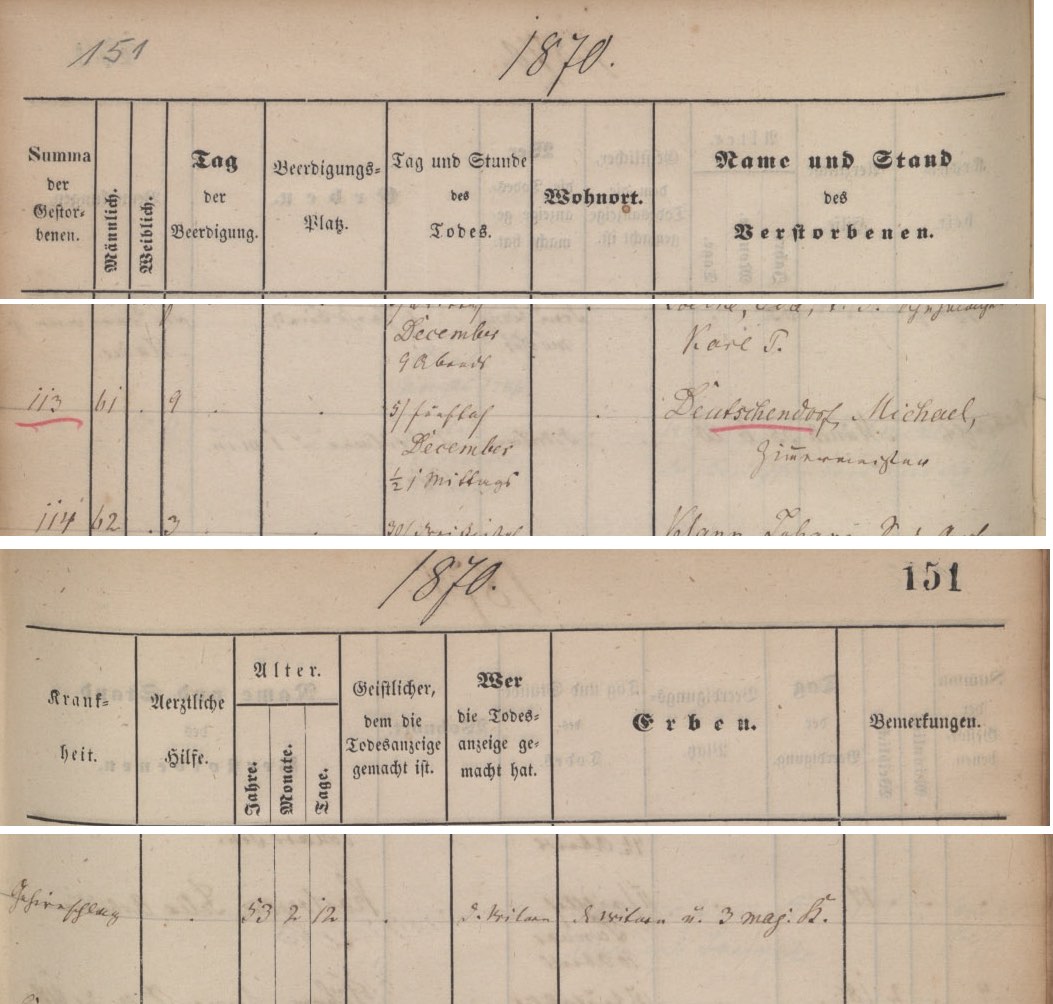 151
1870.
Summa der Gestor- benen.
Männlich.
Weiblich.
Tag der Beerdigung.
Beerdigungs- Platz.
Tag und Stunde des Todes.
Wohnort.
Name und Stand des Verstorbenen.
December
Karl T.
9 Abends
113 61 . 9 . . 5/ fünften . Deutschendorf, Michael,
December Zimmermeister
½ 1 Mittags
114 62 . 3 . . 30/ Johann
1870.
151
Krank- heit.
Aerztliche Hilfe.
Alter.
Jahre.
Monate.
Tage.
Geistlicher, dem die Todesanzeige gemacht ist.
Wer die Todes- anzeige ge- macht hat.
Erben.
Bemerkungen.
Gehirnschlag . 53 2 12 . d. Witwe d. Witwe u. 3 maj. K.